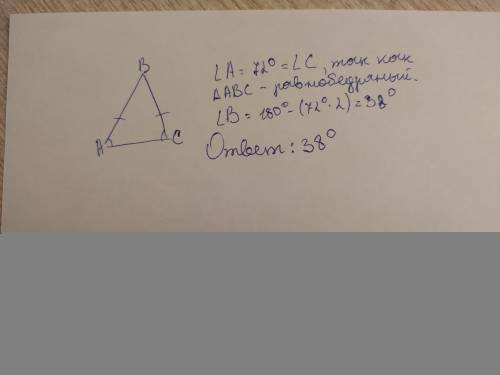 B
A
C
∠A = 72° = ∠C, так как
△ABC - равнобедряный.
∠B = 180° - (72° · 2) = 38°
Ответ: 38°